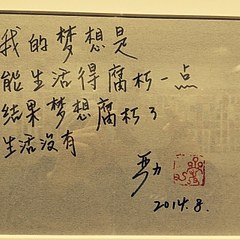 我的梦想是
能生活得腐朽一点
结果梦想腐朽了
生活没有
2014.8.